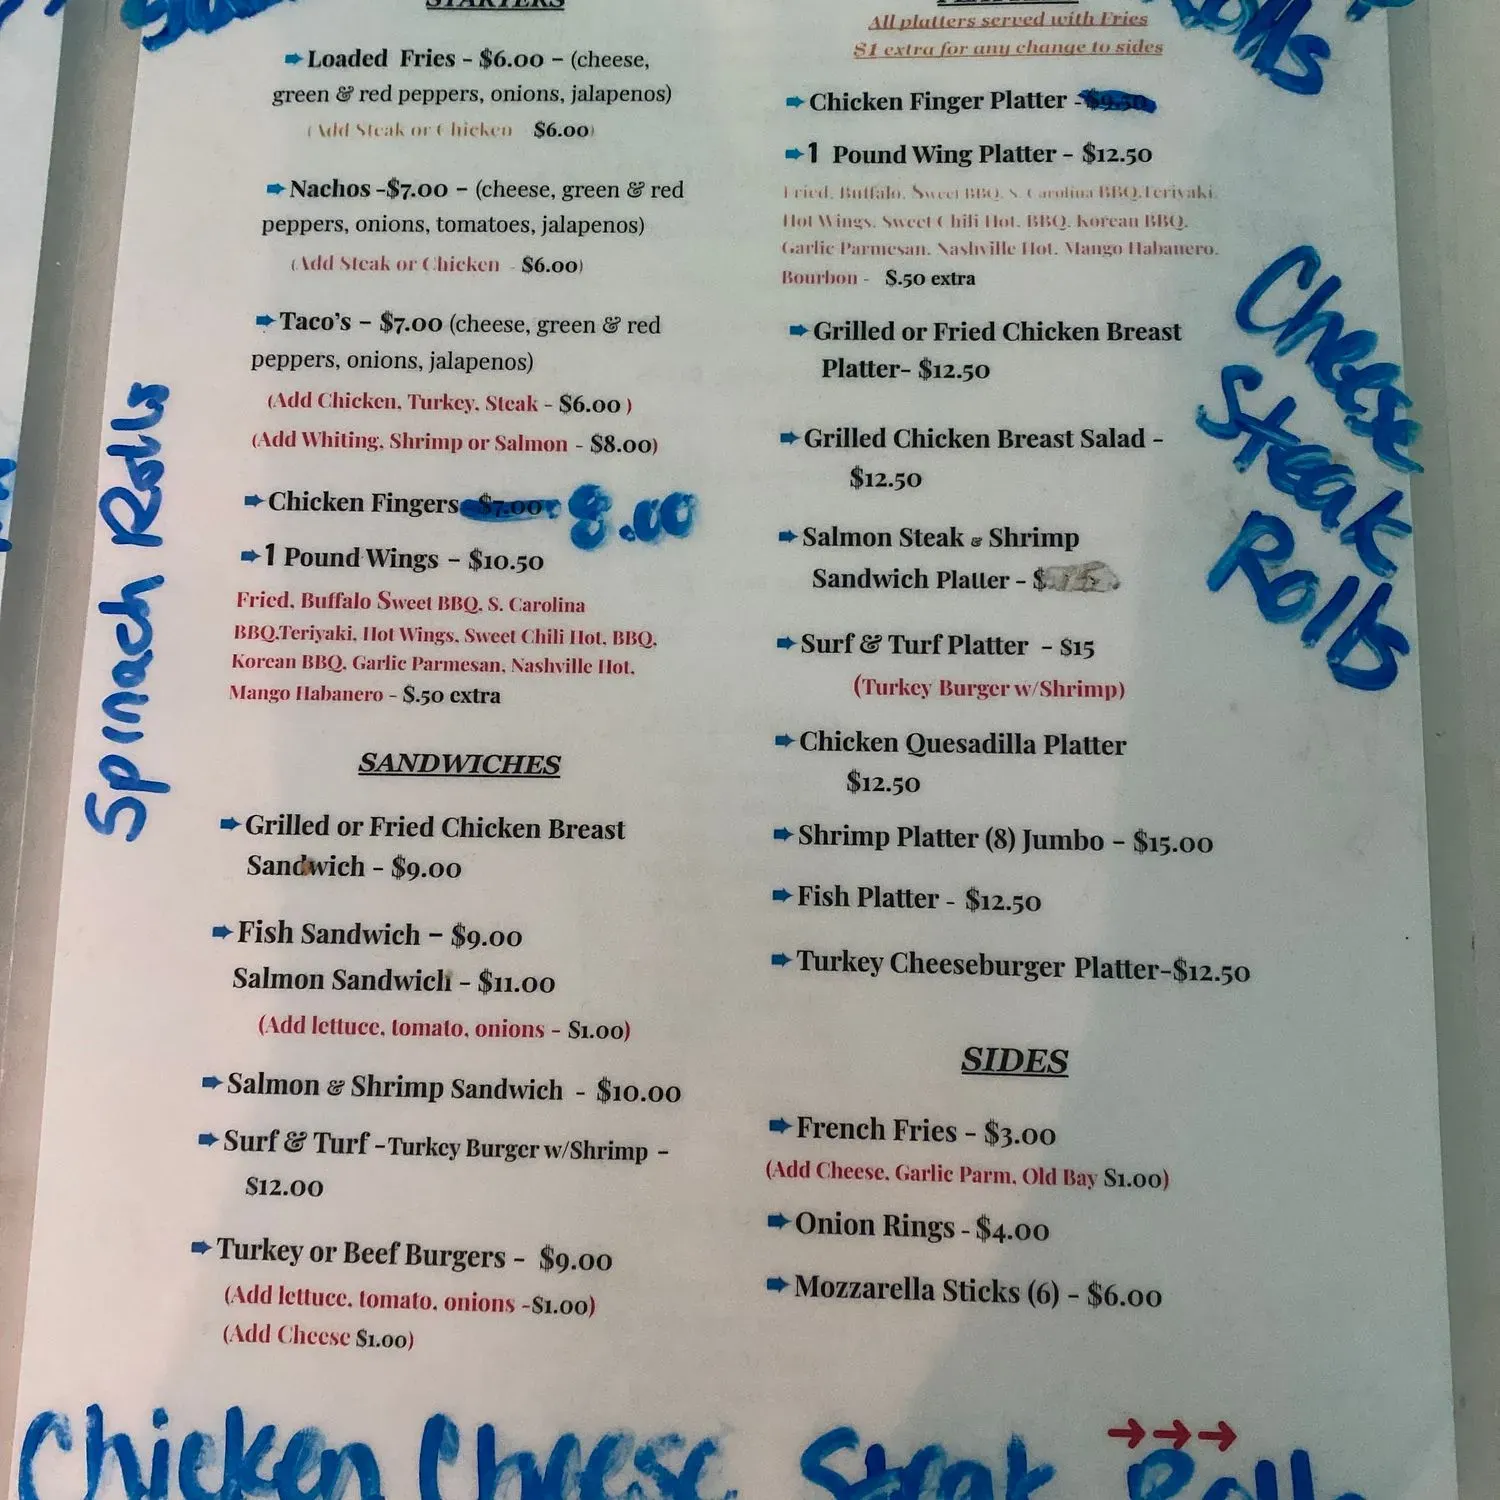 STARTERS
Loaded Fries - $6.00 – (cheese,
green & red peppers, onions, jalapenos)
(Add Steak or Chicken $6.00)
Nachos -$7.00 – (cheese, green & red
peppers, onions, tomatoes, jalapenos)
(Add Steak or Chicken - $6.00)
Taco's – $7.00 (cheese, green & red
peppers, onions, jalapenos)
(Add Chicken, Turkey, Steak - $6.00 )
(Add Whiting, Shrimp or Salmon - $8.00)
Chicken Fingers $7.00 8.00
1 Pound Wings – $10.50
Fried, Buffalo Sweet BBQ, S. Carolina
BBQ,Teriyaki, Hot Wings, Sweet Chili Hot, BBQ,
Korean BBQ, Garlic Parmesan, Nashville Hot,
Mango Habanero - $.50 extra
SANDWICHES
Grilled or Fried Chicken Breast
Sandwich – $9.00
Fish Sandwich – $9.00
Salmon Sandwich - $11.00
(Add lettuce, tomato, onions - $1.00)
Salmon & Shrimp Sandwich - $10.00
Surf & Turf -Turkey Burger w/Shrimp –
$12.00
Turkey or Beef Burgers - $9.00
(Add lettuce, tomato, onions -$1.00)
(Add Cheese $1.00)
Spinach Rolls
All platters served with Fries
$1 extra for any change to sides
Chicken Finger Platter -$9.50
1 Pound Wing Platter - $12.50
Fried, Buffalo, Sweet BBQ, S. Carolina BBQ,Teriyaki,
Hot Wings, Sweet Chili Hot, BBQ, Korean BBQ,
Garlic Parmesan, Nashville Hot, Mango Habanero,
Bourbon - $.50 extra
Grilled or Fried Chicken Breast
Platter- $12.50
Grilled Chicken Breast Salad -
$12.50
Salmon Steak & Shrimp
Sandwich Platter - $
Surf & Turf Platter - $15
(Turkey Burger w/Shrimp)
Chicken Quesadilla Platter
$12.50
Shrimp Platter (8) Jumbo – $15.00
Fish Platter - $12.50
Turkey Cheeseburger Platter-$12.50
SIDES
French Fries - $3.00
(Add Cheese, Garlic Parm, Old Bay $1.00)
Onion Rings - $4.00
Mozzarella Sticks (6) - $6.00
Rolls
Cheese
Steak
Rolls
Chicken Cheese Steak Rolls